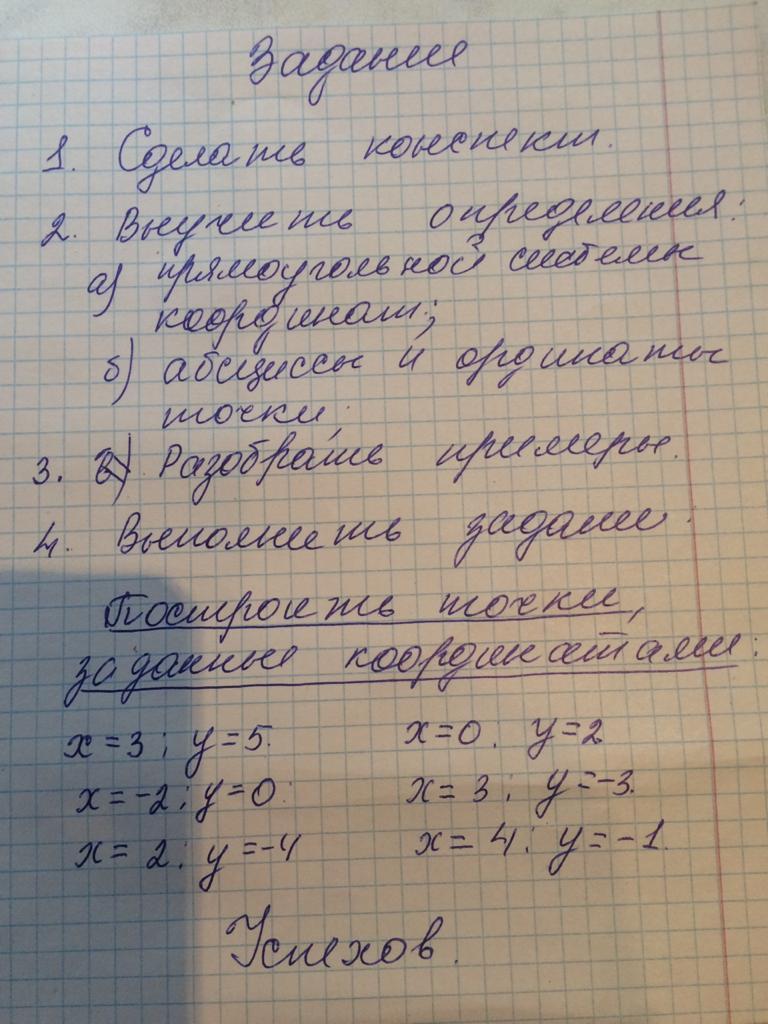 Задания
1. Сделать конспект.
2. Выучить определения:
а) прямоугольной системы
координат;
б) абсциссы и ординаты
точки;
3. Разобрать примеры.
4. Выполнить задание.
Построить точки,
заданные координатами:
x=3; y=5. x=0; y=2
x=-2; y=0. x=3; y=-3.
x=2; y=-4 x=4; y=-1.
Успехов.